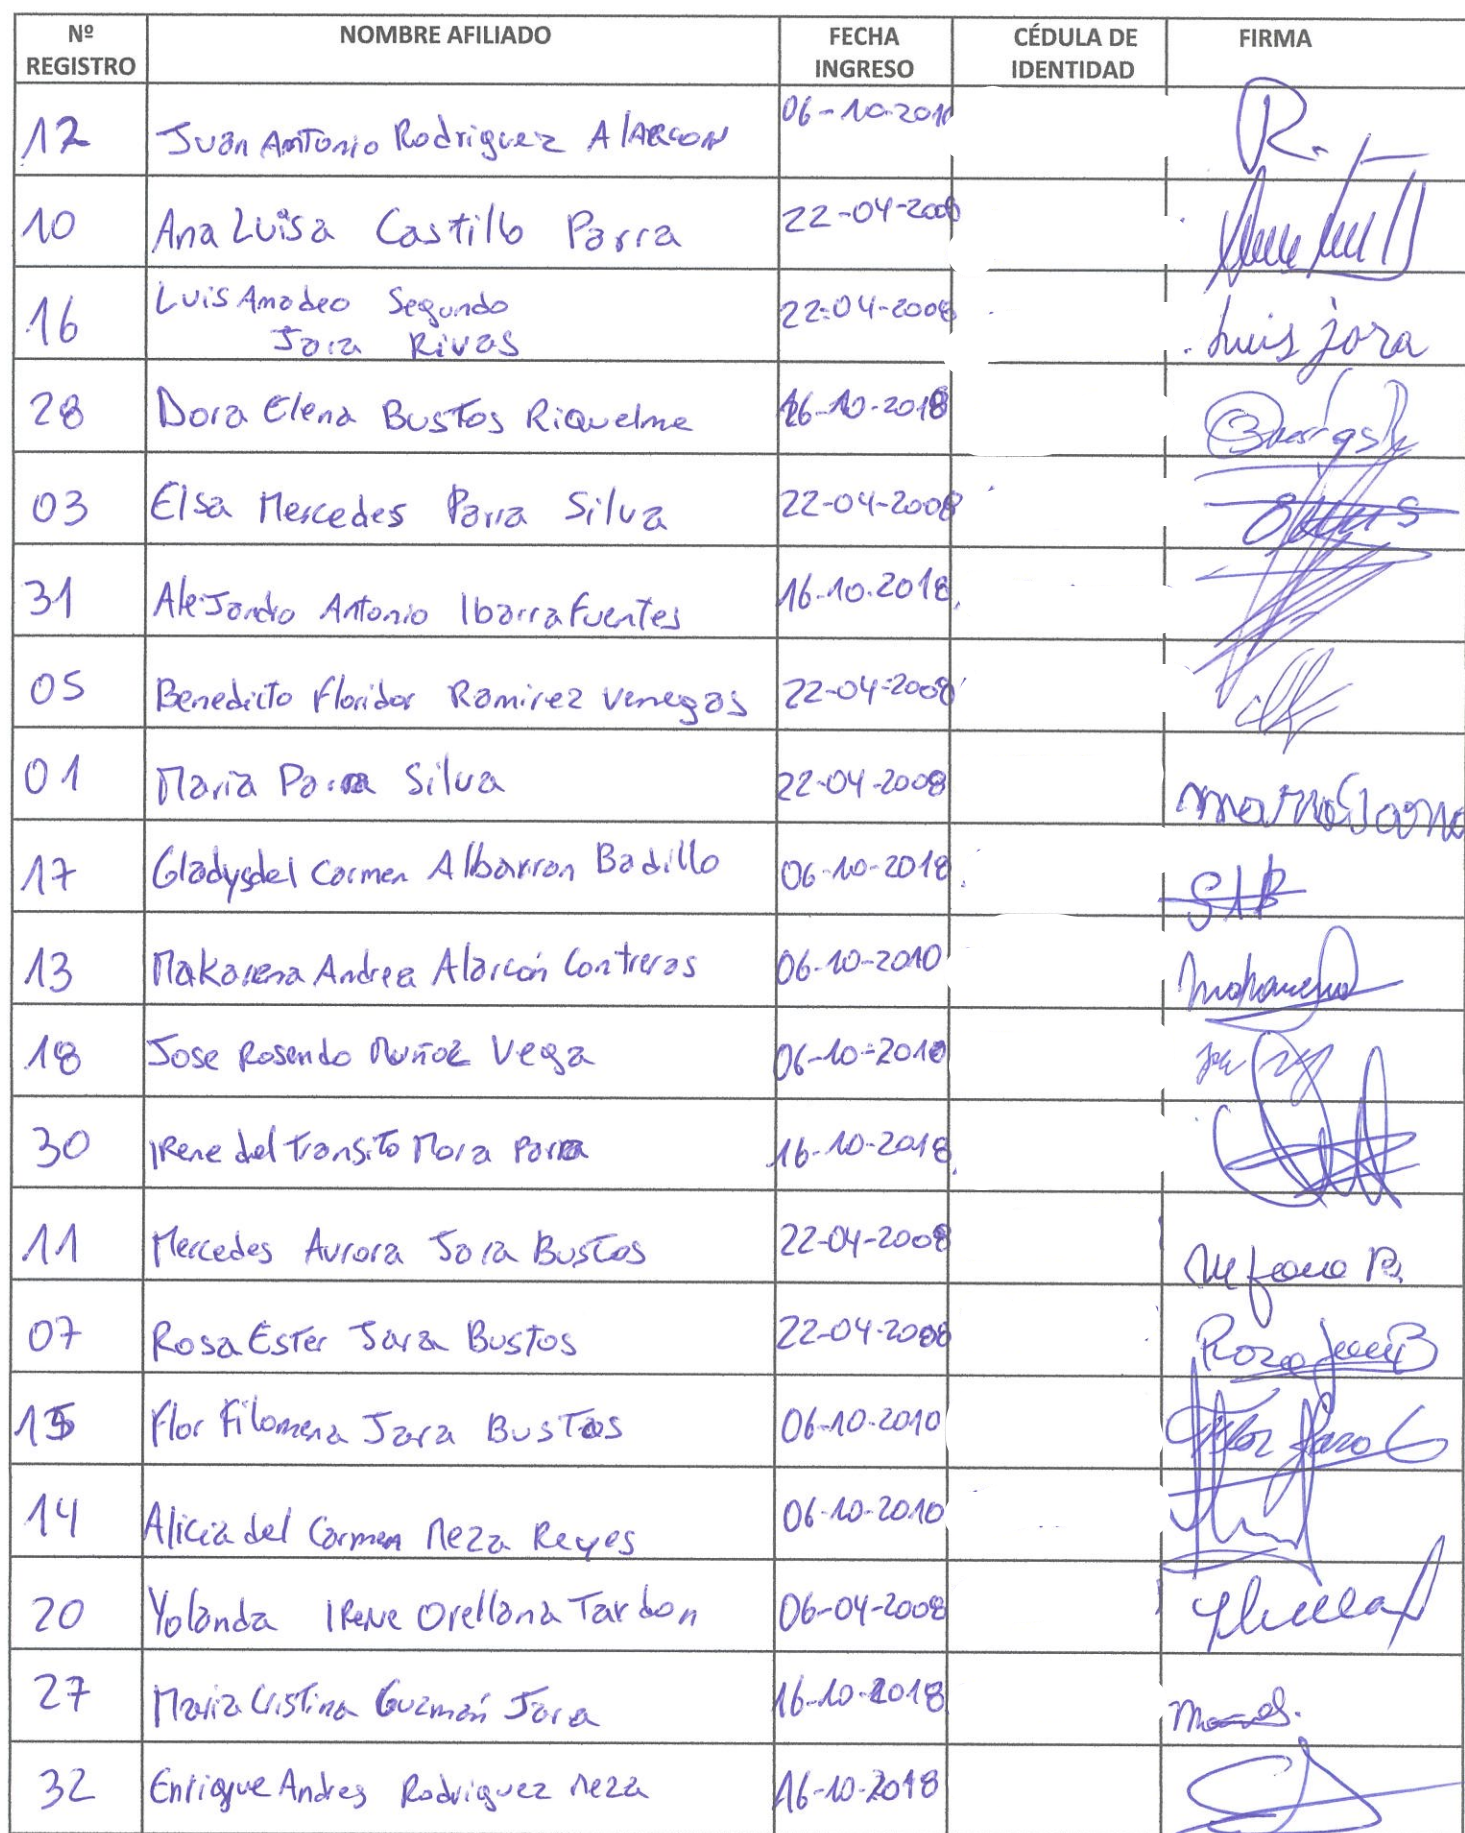 Nº REGISTRO NOMBRE AFILIADO FECHA INGRESO CÉDULA DE IDENTIDAD FIRMA
12 Juan Antonio Rodriguez Alarcon 06-10-2010 R.
10 Ana Luisa Castillo Parra 22-04-2008
16 Luis Amadeo Segundo
Jara Rivas 22-04-2008 Luis jara
28 Dora Elena Bustos Riquelme 16-10-2018
03 Elsa Mercedes Parra Silva 22-04-2008
31 Alejandro Antonio Ibarra Fuentes 16-10-2018
05 Benedicto Floridor Ramirez Venegas 22-04-2008
01 Maria Parra Silva 22-04-2008
17 Gladys del Carmen Albarran Badillo 06-10-2018
13 Makarena Andrea Alarcón Contreras 06-10-2010
18 Jose Rosendo Muñoz Vega 06-10-2010
30 Irene del Transito Mora Parra 16-10-2018
11 Mercedes Aurora Jara Bustos 22-04-2008
07 Rosa Ester Jara Bustos 22-04-2008
15 Flor Filomena Jara Bustos 06-10-2010
14 Alicia del Carmen Meza Reyes 06-10-2010
20 Yolanda Irene Orellana Tardon 06-04-2008
27 Maria Cristina Guzmán Jara 16-10-2018
32 Enrique Andres Rodriguez Meza 16-10-2018